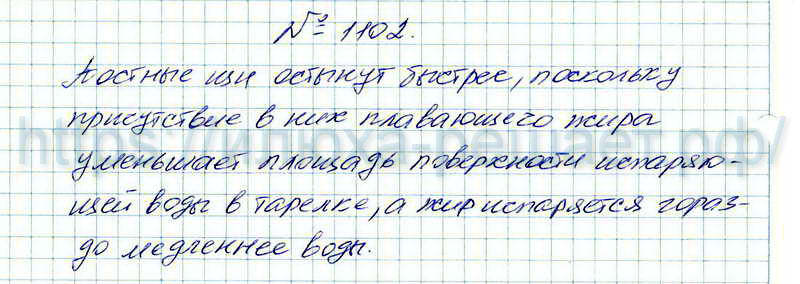 № 1102.
Постные щи остынут быстрее, поскольку
присутствие в них плавающего жира
уменьшает площадь поверхности испаряю-
щей воды в тарелке, а жир испаряется гораз-
до медленнее воды.